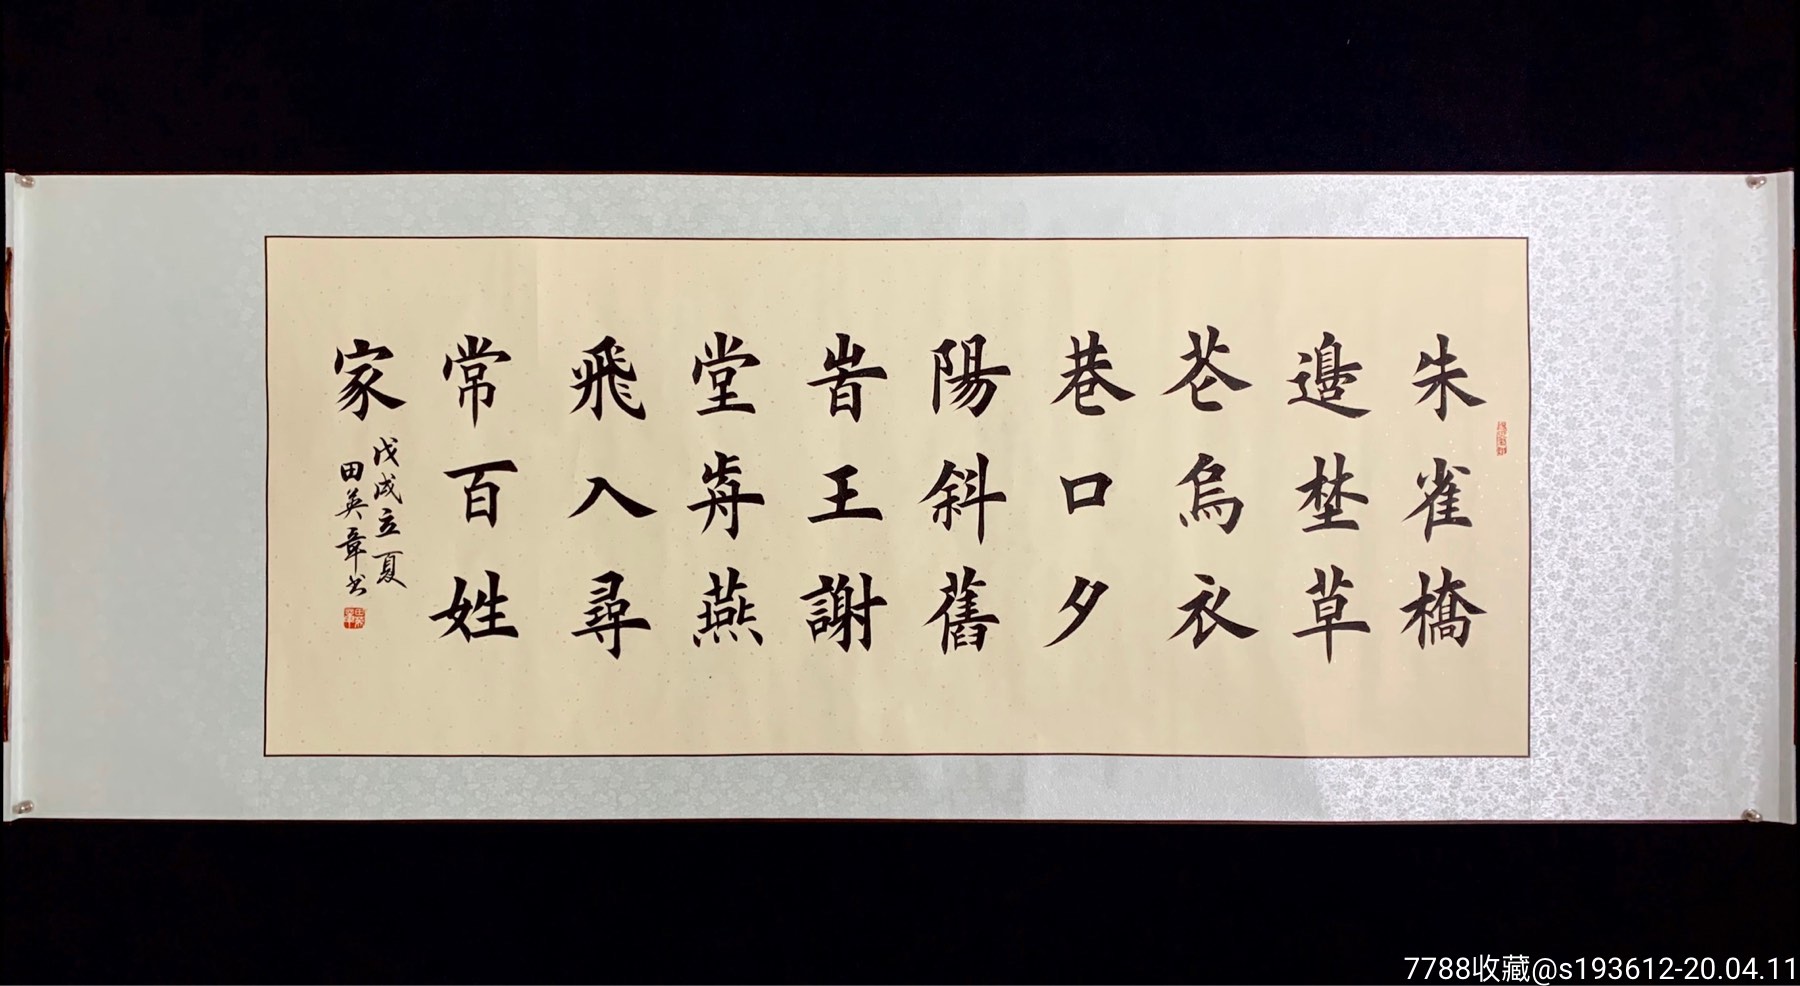 朱雀橋
邉埜草
花烏衣
巷口夕
陽斜舊
旹王謝
堂歬燕
飛入尋
常百姓
家
戊戌立夏
田英章书
7788收藏@s193612-20.04.11